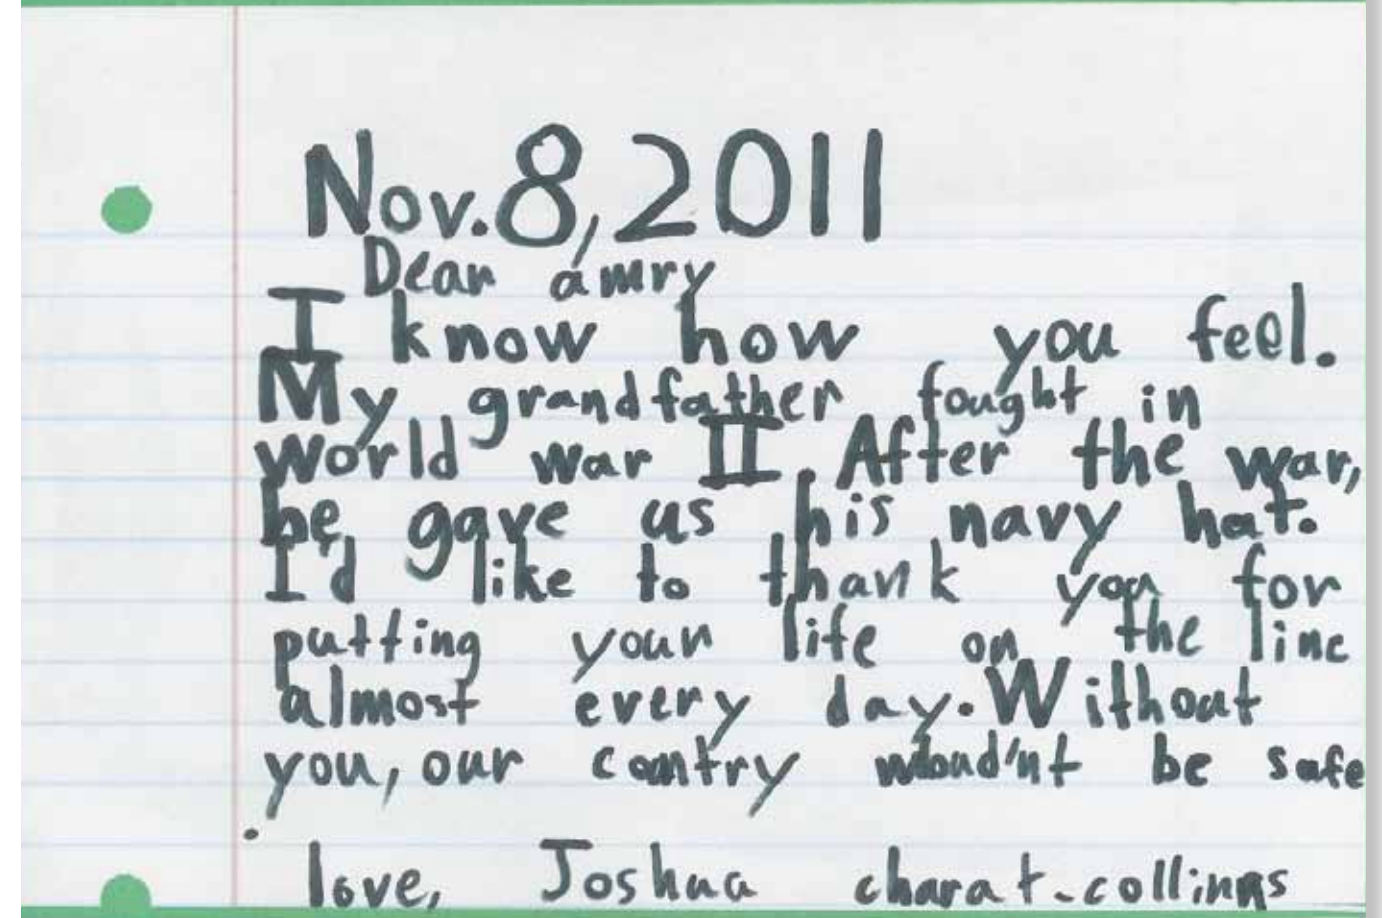 Nov. 8, 2011
Dear amry
I know how you feel.
My grandfather fought in
world war II. After the war,
he gave us his navy hat.
I'd like to thank you for
putting your life on the line
almost every day. Without
you, our contry woud'nt be safe
.
love, Joshua charat-collins